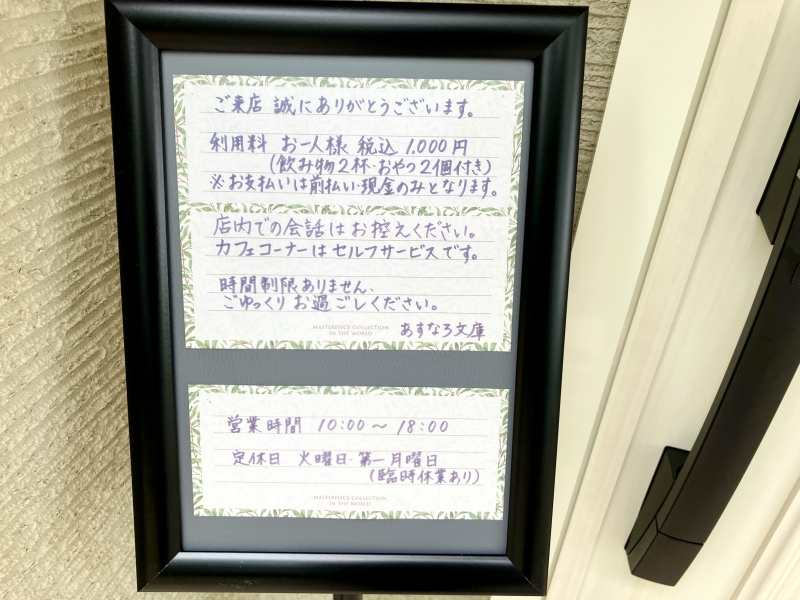 ご来店 誠にありがとうございます。
利用料 お一人様 税込 1,000円
(飲み物2杯・おやつ2個付き)
※お支払いは前払い・現金のみとなります。
店内での会話はお控えください。
カフェコーナーはセルフサービスです。
時間制限ありません。
ごゆっくりお過ごしください。
MASTERPIECE COLLECTION
IN THE WORLD
あすなろ文庫
営業時間 10:00〜18:00
定休日 火曜日・第一月曜日
(臨時休業あり)
MASTERPIECE COLLECTION
IN THE WORLD